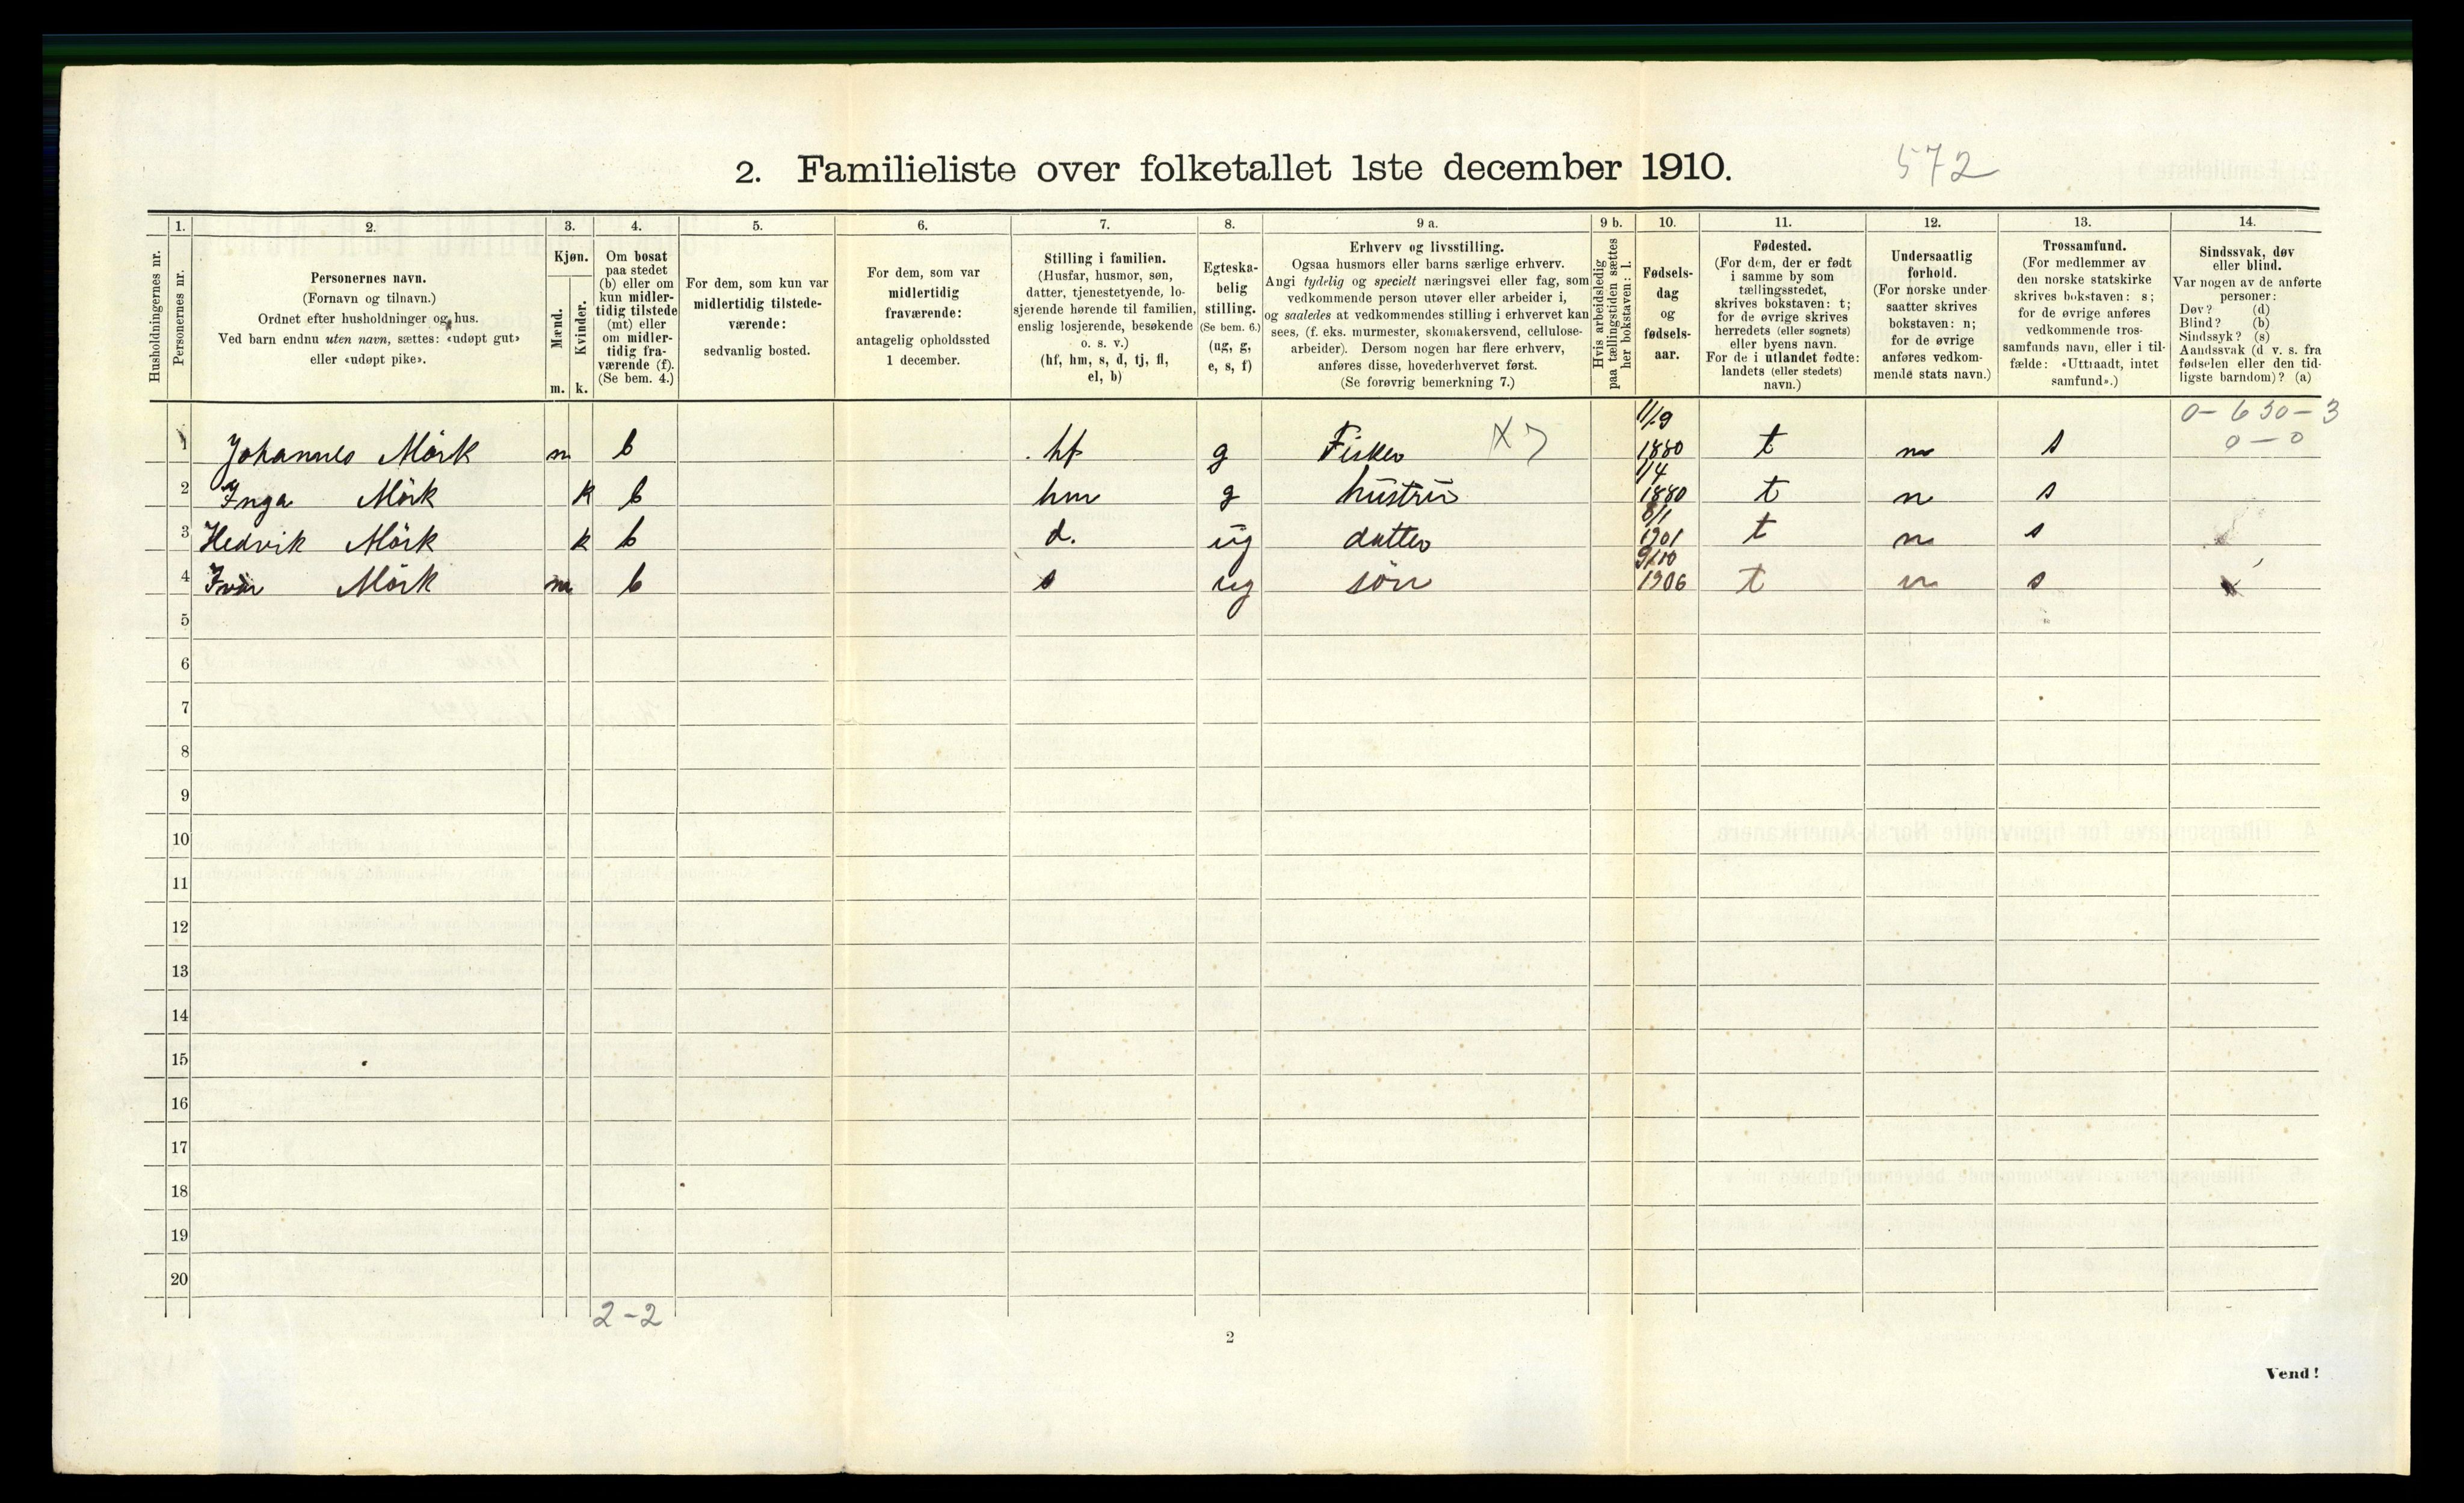 2. Familieliste over folketallet 1ste december 1910. 572
1. 2. 3. 4. 5. 6. 7. 8. 9 a. 9 b. 10. 11. 12. 13. 14.
Husholdningernes nr.
Personernes nr.
Personernes navn.
(Fornavn og tilnavn.)
Ordnet efter husholdninger og hus.
Ved barn endnu uten navn, sættes: «udøpt gut»
eller «udøpt pike».
Kjøn.
Mænd.
Kvinder.
m. k.
Om bosat
paa stedet
(b) eller om
kun midler-
tidig tilstede
(mt) eller
om midler-
tidig fra-
værende (f).
(Se bem. 4.)
For dem, som kun var
midlertidig tilstede-
værende:
sedvanlig bosted.
For dem, som var
midlertidig
fraværende:
antagelig opholdssted
1 december.
Stilling i familien.
(Husfar, husmor, søn,
datter, tjenestetyende, lo-
sjerende hørende til familien,
enslig losjerende, besøkende
o. s. v.)
(hf, hm, s, d, tj, fl,
el, b)
Egteska-
belig
stilling.
(Se bem. 6.)
(ug, g,
e, s, f)
Erhverv og livsstilling.
Ogsaa husmors eller barns særlige erhverv.
Angi tydelig og specielt næringsvei eller fag, som
vedkommende person utøver eller arbeider i,
og saaledes at vedkommendes stilling i erhvervet kan
sees, (f. eks. murmester, skomakersvend, cellulose-
arbeider). Dersom nogen har flere erhverv,
anføres disse, hovederhvervet først.
(Se forøvrig bemerkning 7.)
Hvis arbeidsledig
paa tællingstiden sættes
her bokstaven: l.
Fødsels-
dag
og
fødsels-
aar.
Fødested.
(For dem, der er født
i samme by som
tællingsstedet,
skrives bokstaven: t;
for de øvrige skrives
herredets (eller sognets)
eller byens navn.
For de i utlandet fødte:
landets (eller stedets)
navn.)
Undersaatlig
forhold.
(For norske under-
saatter skrives
bokstaven: n;
for de øvrige
anføres vedkom-
mende stats navn.)
Trossamfund.
(For medlemmer av
den norske statskirke
skrives bokstaven: s;
for de øvrige anføres
vedkommende tros-
samfunds navn, eller i til-
fælde: «Uttraadt, intet
samfund».)
Sindssvak, døv
eller blind.
Var nogen av de anførte
personer:
Døv? (d)
Blind? (b)
Sindssyk? (s)
Aandssvak (d. v. s. fra
fødselen eller den tid-
ligste barndom)? (a)
0-630-3
0-0
1 Johannes Mörk m b hf g Fisker X 7 11/9 1880 t n s
2 Inga Mörk k b hm g hustru 1/4 1880 t n s
3 Hedvik Mörk k b d. ug datter 8/1 1901 t n s
4 Ivar Mörk m b s ug sön 9/10 1906 t n s
5
6
7
8
9
10
11
12
13
14
15
16
17
18
19
20
2-2
2
Vend!